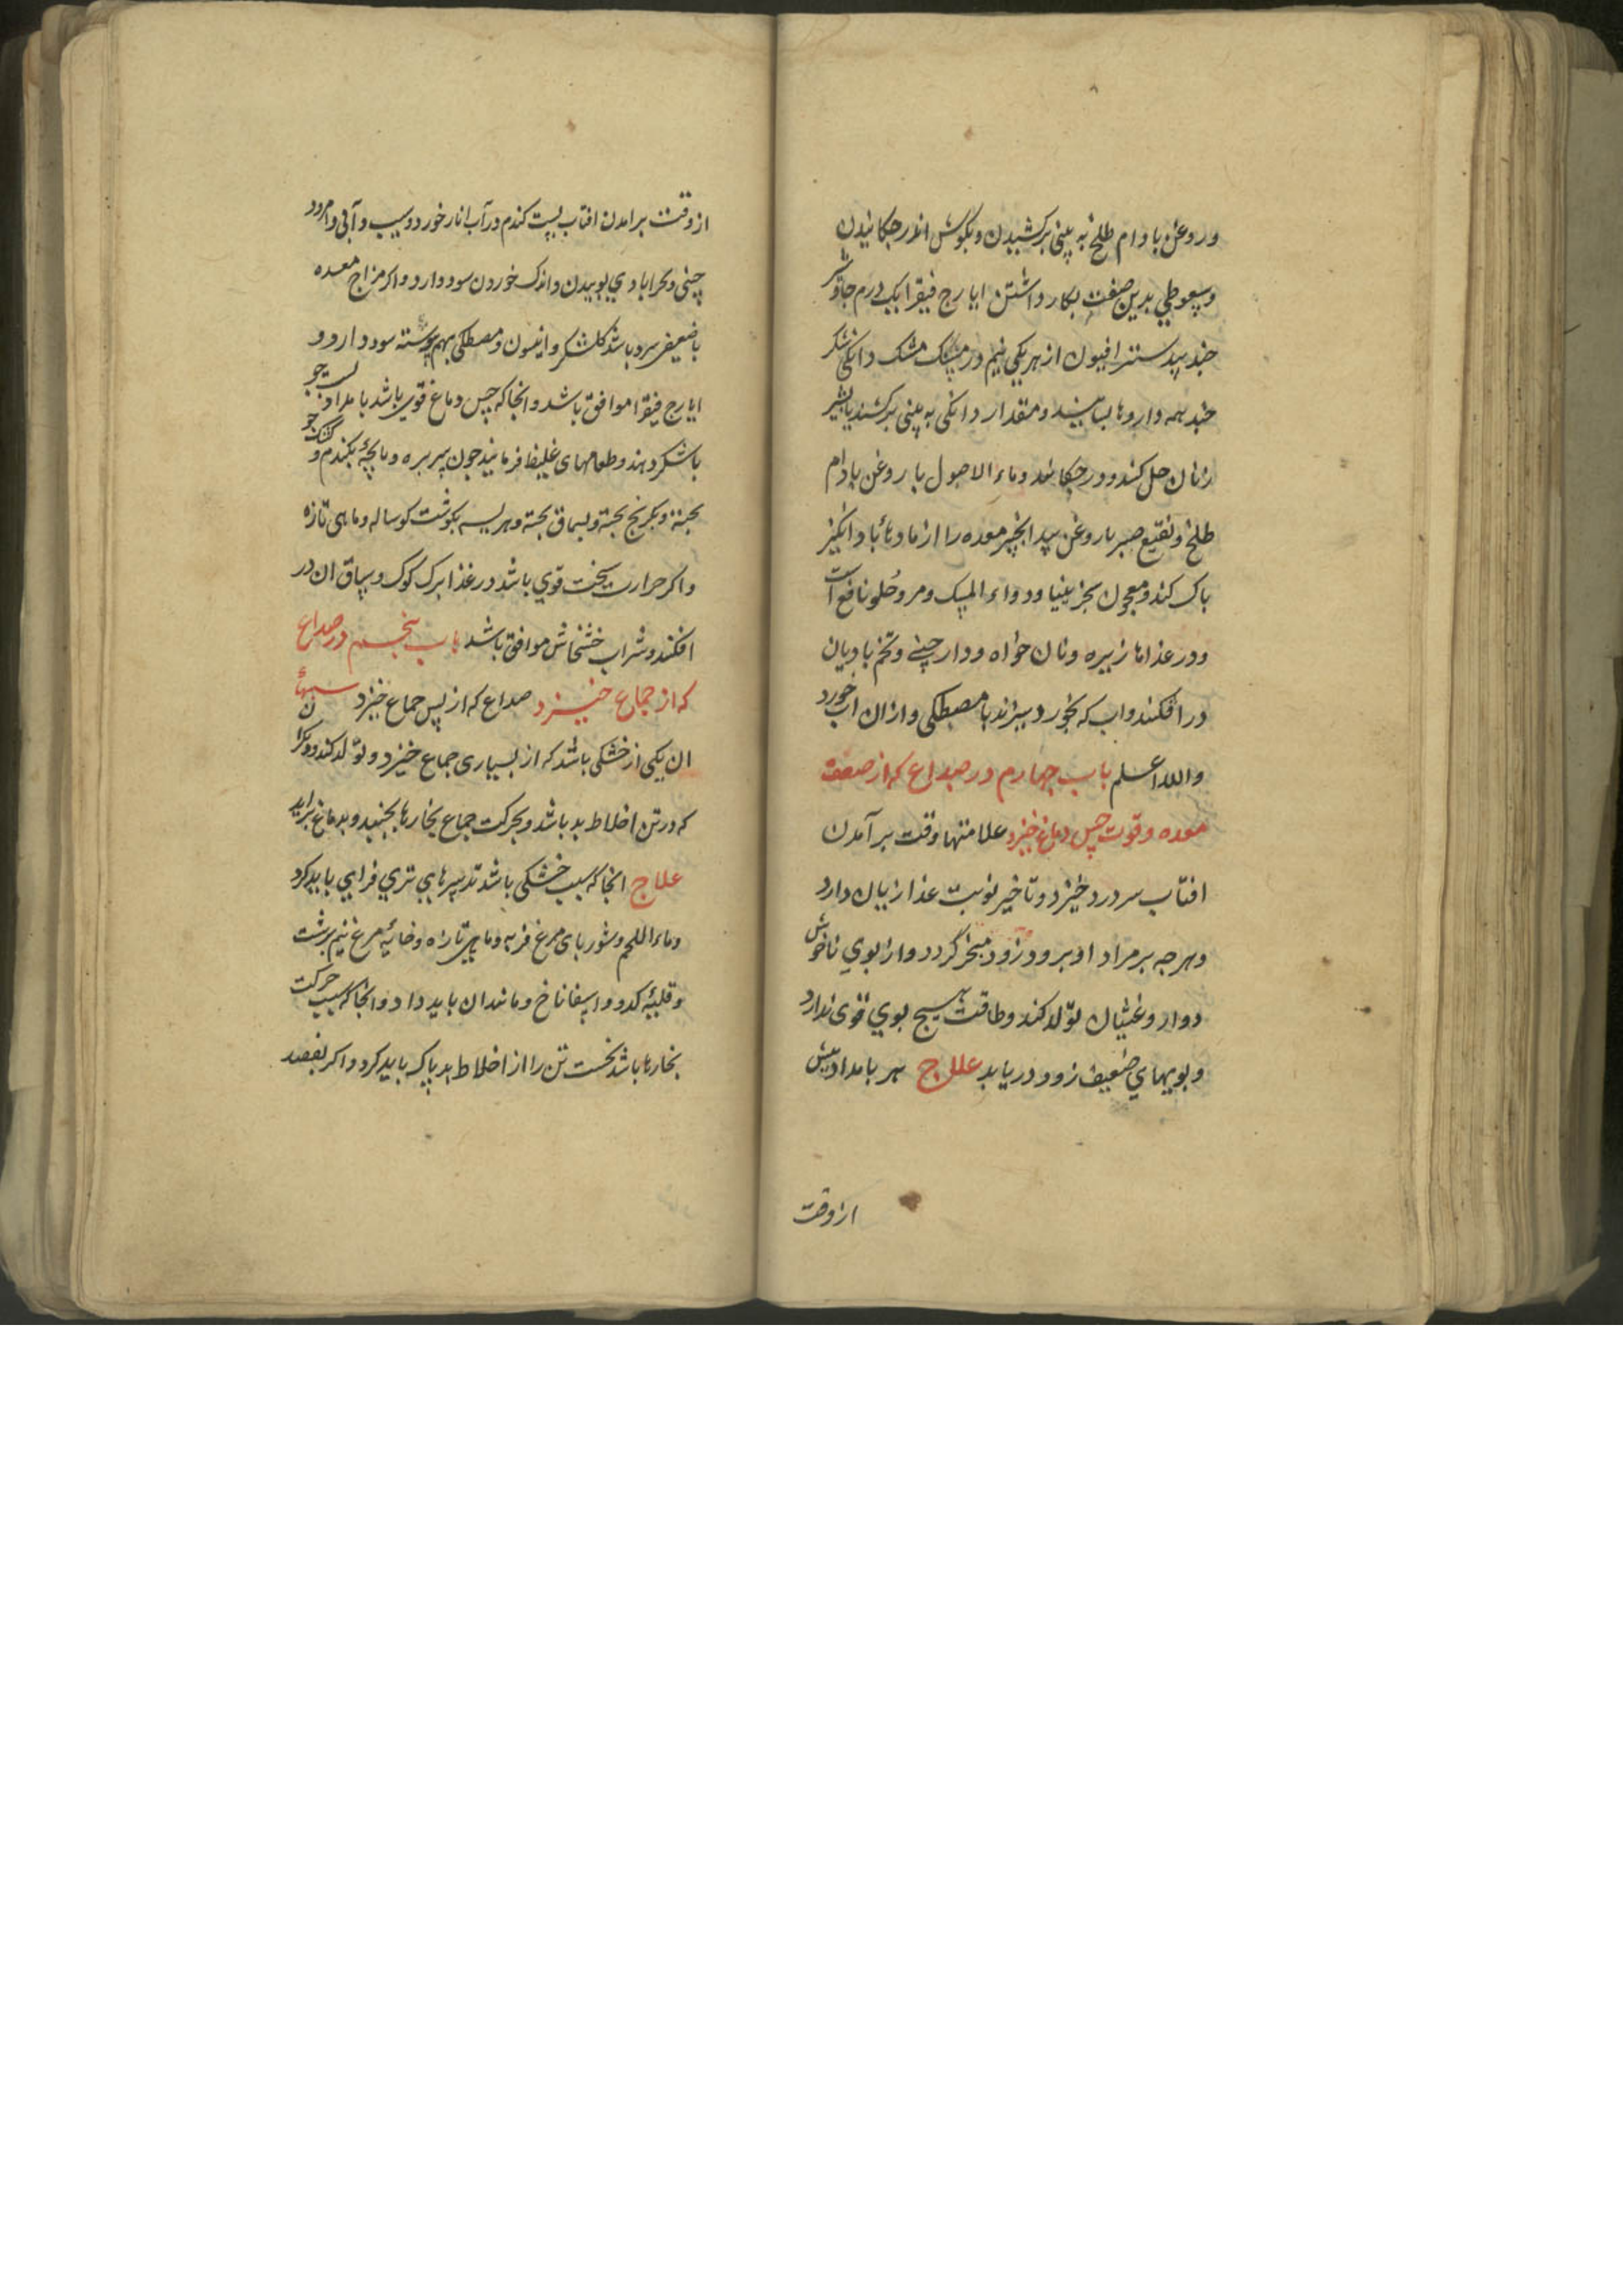 وروغن بادام طلخ به بینی برکشیدن و بکوش اندر جکانیدن
وسعوطی بدین صفت بکار داشتن ایارج فیقرا یک درم جاوشیر
جند بیدستر افیون از هر یکی نیم درمسنک مشک دانکی شکر
جند همه داروها بسایند و مقدار دانکی به بینی برکشند یا بشیر
زنان حل کنند و درجکانند وماء الاصول با روغن بادام
طلخ ونقیع صبر با روغن بید انجیر معده را از مادهاء باد انکیز
باک کند ومعجون سجزینیا ودواء المسک ومر وحلو نافع است
ودر غذاها زیره ونان خواه ودار چینی وتخم بادیان
در افکنند واب که بخورد ببزاند با مصطکی وازان اب خورد
والله اعلم باب چهارم در صداع که از ضعف
معده وقوت حس دماغ خیزد علامتها وقت بر آمدن
افتاب سر درد خیزد وتاخیر نوبت غذا زیان دارد
وهرجه بر مراد او برود زود متغیر گردد واز بوی ناخوش
دوار وغثیان تولد کند وطاقت هیچ بوی قوی ندارد
وبویهای ضعیف زود دریابد علاج هر بامداد بیش
از وقت
از وقت برامدن افتاب بست کندم در آب انار خورد وسیب وآبی وامرود
چینی وبحرابادی بوییدن واندک خوردن سود دارد واکر مزاج معده
با ضعیفی سرد باشد کلشکر وانیسون ومصطکی بهم پیوسته سود دارد و
ایارج فیقرا موافق باشد وانجا که حس دماغ قوی باشد بامداد بست جو
با شکر دهند وطعامهای غلیظ فرمایند جون سر بره وباجه بکندم و کشک جو
بخته وبکرنج بخته وبسماق بخته وهریسه بکوشت کوساله وماهی تازه
واکر حرارت سخت قوی باشد در غذا برک کوک وسباق ان در
افکنند وشراب خشخاش موافق باشد باب پنجم در صداع
که از جماع خیزد صداع که از پس جماع خیزد سببهاء
ان یکی از خشکی باشد که از بسیاری جماع خیزد وتولد کند ودیکر انک
که در تن اخلاط بد باشد وبحرکت جماع بخارها بجنبد وبدماغ براید
علاج انجا که سبب خشکی باشد تدبیرهای تری فزای باید کرد
وماء اللحم وشوربای مرغ فربه وماهی تازه وخایه مرغ نیم برشت
وقلیه کدو واسفاناخ ومانند ان باید داد وانجا که سبب حرکت
بخارها باشد نخست تن را از اخلاط بد پاک باید کرد واکر بفصد